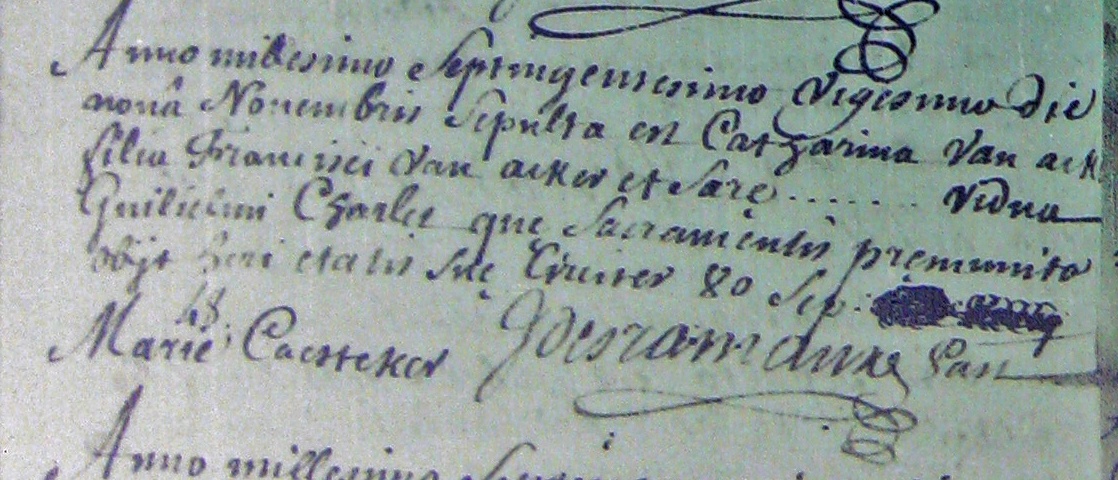 Anno millesimo Septingentesimo vigesimo die
nonâ Novembris Sepulta est Catharina Van ack
filia Francisci Van acker et Saræ ........ vidua
Guilielmi Charles quæ Sacramentis præmunita
obijt heri ætatis suæ Circiter 80 Sep:
48
Mariæ Caesteker J Desramaux Past
Anno millesimo